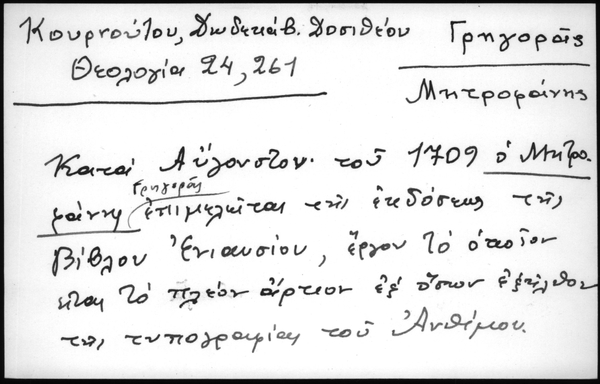 Κουρνούτου, Δωδεκάβ. Δοσιθέου
Θεολογία 24, 261
Γρηγορᾶς
Μητροφάνης
Κατά Αὔγουστον τοῦ 1709 ὁ Μητρο-
φάνης Γρηγορᾶς ἐπιμελεῖται τῆς ἐκδόσεως τῆς
Βίβλου Ἐνιαυσίου, ἔργον τό ὁποῖον
εἶναι τό πλέον ἄρτιον ἐξ ὅσων ἐξῆλθον
τῆς τυπογραφίας τοῦ Ἀνθίμου.